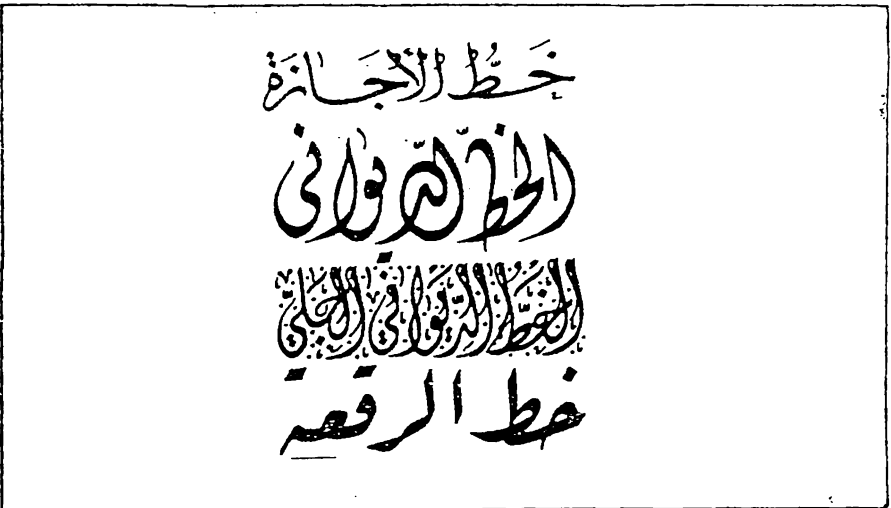 خَطُّ الْأَجَازَة
الخط الديواني
الخط الديواني الجلي
خط الرقعة